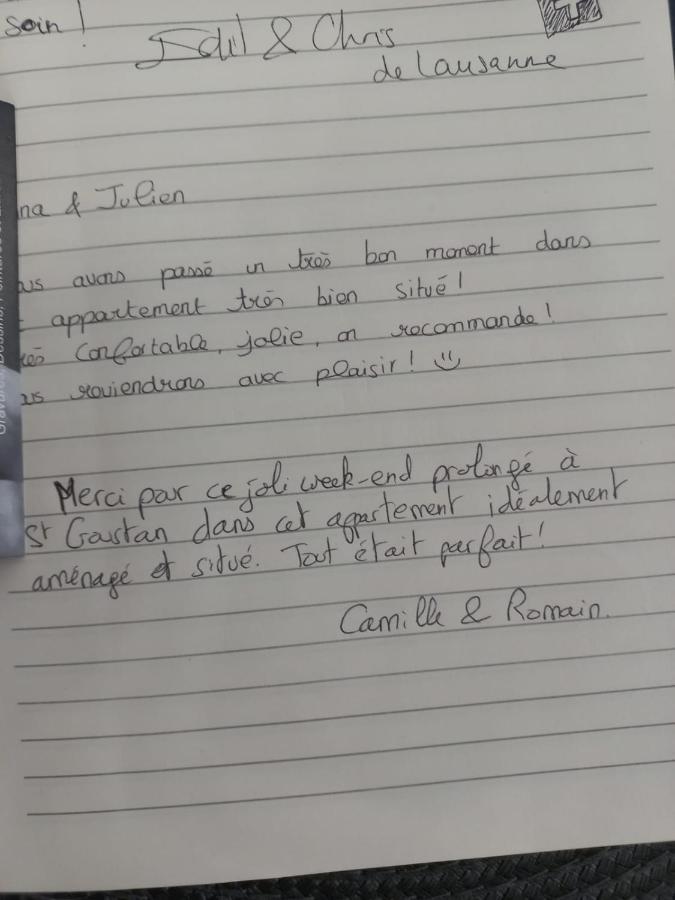 soin !
& Chris
de Lausanne
na & Julien
us avons passé un très bon moment dans
appartement très bien situé !
ès confortable, jolie, on recommande !
us reviendrons avec plaisir !
Merci par ce joli week-end prolongé à
St Goustan dans cet appartement idéalement
aménagé et situé. Tout était parfait !
Camille & Romain.